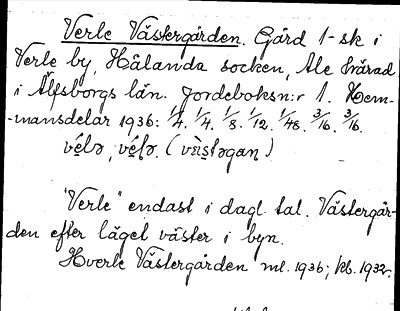 Verle Västergården. Gård 1-sk i
Verle by, Hålanda socken, Ale härad
i Älfsborgs län. Jordeboksn:r 1. Hem-
-mansdelar 1936: 1/4. 1/4. 1/8. 1/12. 1/48. 3/16. 3/16.
"Verle" endast i dagl. tal. Västergår-
den efter läget väster i byn.
Hverle Västergården ml. 1936; kb. 1932.